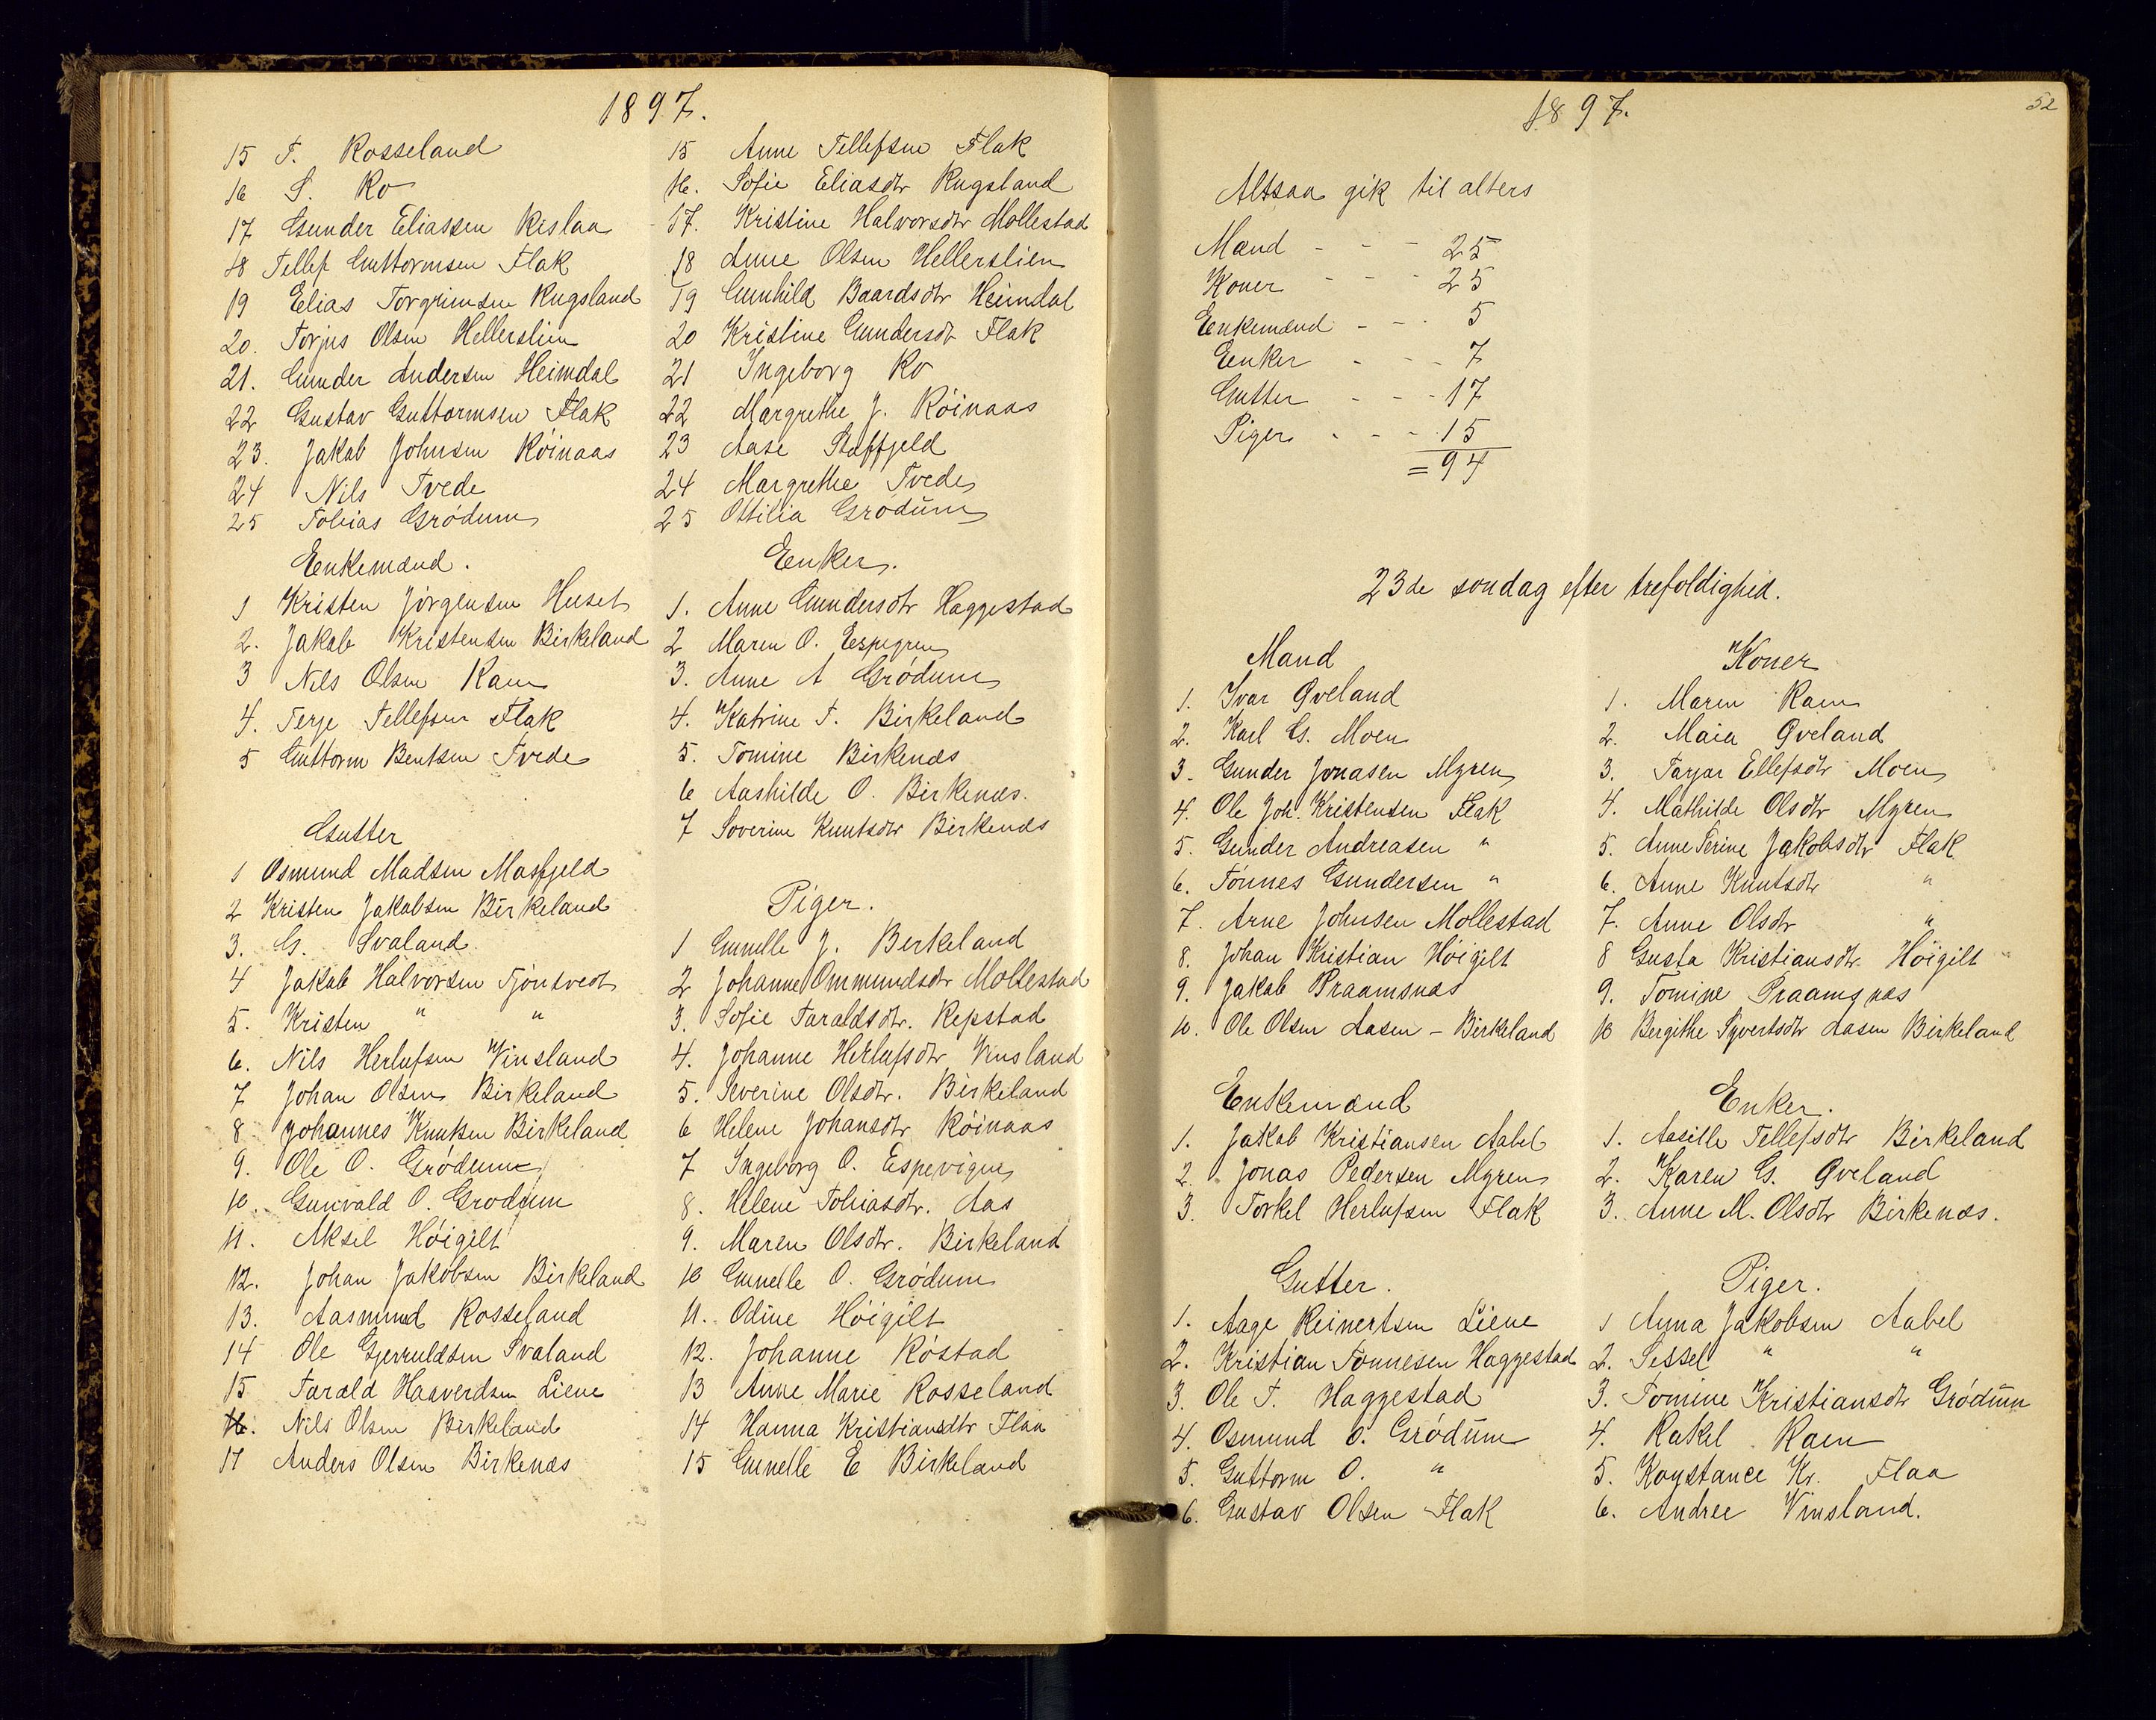 1897.
15 T. Rosseland
16 S. Ro
17 Gunder Eliassen Rislaa
18 Tellef Guttormsen Flak
19 Elias Torgrimsen Rugsland
20. Torjus Olsen Hellerslien
21. Gunder Andersen Heimdal
22 Gustav Guttormsen Flak
23. Jakob Johnsen Röinaas
24 Nils Tvede
25 Tobias Grödum
Enkemænd.
1 Kristen Jörgensen Huset
2. Jakob Kristensen Birkeland
3 Nils Olsen Raen
4. Terje Tellefsen Flak
5 Guttorm Bentsen Tvede
Gutter
1 Osmund Madsen Masfjeld
2 Kristen Jakobsen Birkeland
3. G. Svaland
4 Jakob Halvorsen Tjönsvedt
5. Kristen " "
6. Nils Herlufsen Vinsland
7 Johan Olsen Birkeland
8 Johannes Knutsen Birkeland
9. Ole O. Grödum
10. Gunvald O. Grodum
11. Aksel Höigilt
12. Johan Jakobsen Birkeland
13. Aasmund Rosseland
14 Ole Gjerruldsen Svaland
15 Tarald Haaverdsen Liene
16. Nils Olsen Birkeland
17 Anders Olsen Birkenæs
15 Anne Tellefsen Flak
16. Sofie Eliasdtr Rugsland
17. Kristine Halvorsdtr Mollestad
18 Anne Olsen Hellerslien
19 Gunhild Baardsdtr Heimdal
20 Kristine Gundersdt Flak
21 Ingeborg Ro
22 Margrethe J. Röinaas
23 Aase Stoffjeld
24 Margrethe Tvede
25 Ottilia Grodum
Enker.
1. Anne Gundersdtr Haggestad
2 Maren O. Espegren
3. Anne A Grödum
4. Katrine T. Birkeland
5. Tomine Birkenæs
6 Aashilde O. Birkenæs.
7 Soverine Knutsdtr Birkenæs
Piger.
1 Gunelle J. Berkeland
2 Johanne Ommundsdtr Mollestad
3. Sofie Taraldsdtr. Repstad
4. Johanne Herlufsdtr Vinsland
5. Severine Olsdtr. Birkeland
6 Helene Johansdtr Röinaas
7 Ingeborg O. Espevigen
8. Helene Tobiasdtr. Aas
9. Maren Olsdtr. Birkeland
10 Gunelle O. Grödum
11. Odine Höigilt
12. Johanne Röstad
13 Anne Marie Rosseland
14 Hanna Kristiansdtr Flaa
15 Gunelle E Birkeland
1897.
52
Altsaa gik til alters
Mænd - - - 25
Koner - - - 25
Enkemænd - - - 5
Enker - - - 7
Gutter - - - 17
Piger - - - 15
= 94
23de sondag efter trefoldighed.
Mænd
1. Ivar Qveland
2. Karl G. Moen
3. Gunder Jonasen Myren
4. Ole Joh. Kristensen Flak
5. Gunder Andreasen "
6. Tönnes Gundersen "
7. Arne Johnsen Mollestad
8. Johan Kristian Höigilt
9. Jakob Praamsnæs
10. Ole Olsen Aasen - Birkeland
Enkemænd
1. Jakob Kristiansen Aabel
2. Jonas Pedersen Myren
3. Torkel Herlufsen Flak
Gutter.
1. Aage Reinertsen Liene
2. Kristian Tonnesen Haggestad
3. Ole T. Haggestad
4. Osmund O. Grödum
5. Guttorm O. "
6. Gustav Olsen Flak
Koner
1. Maren Raen
2. Maia Qveland
3. Tarjar Ellefsdtr Moen
4. Mathilde Olsdtr Myren
5. Anne Serine Jakobsdtr Flak
6. Anne Knutsdtr "
7. Anne Olsdtr "
8 Gusta Kristiansdtr. Höigilt
9. Tomine Praamsnæs
10 Bergithe Syvertsdtr Aasen Birkeland
Enker.
1. Aasille Tellefsdtr Birkeland
2. Karen G. Qveland
3. Anne M. Olsdtr Birkenæs.
Piger.
1 Anna Jakobsen Aabel
2. Sissel " "
3. Tomine Kristiansdtr Grödum
4. Rakel Raen
5. Konstance Kr. Flaa
6. Andree Vinsland.